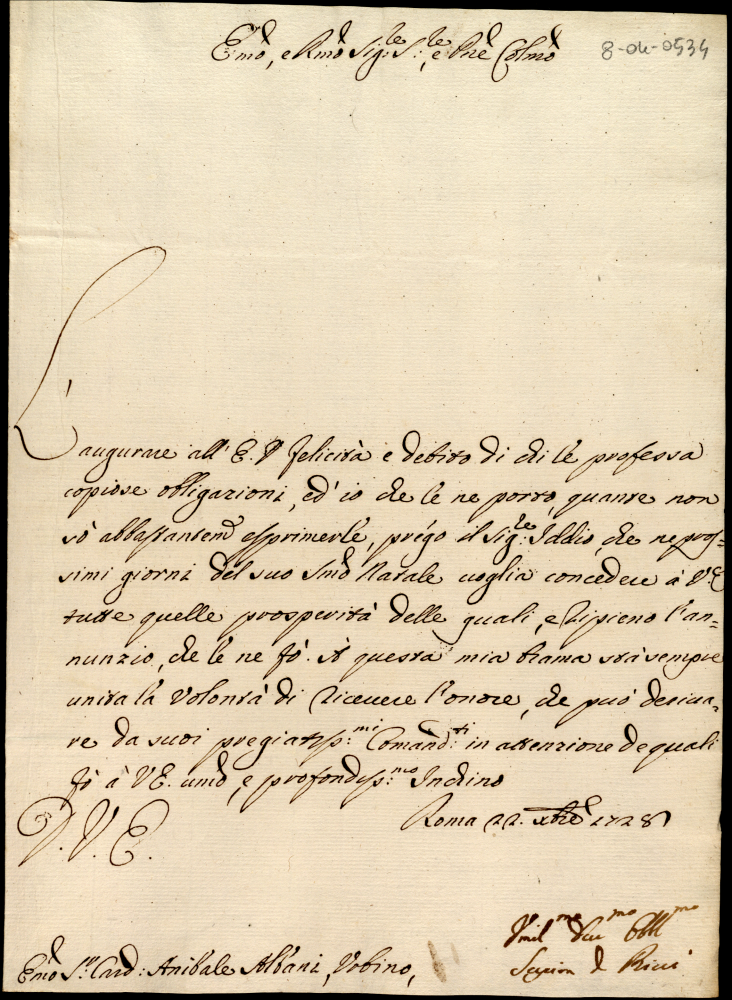 Emo, e Rmo Sig.re S.re, e Pne Colmo
8-04-0534
L'augurare all' E.V. felicità e debito di chi le professa
copiose obligazioni, ed' io che le ne porto, quante non
sò abbastantem.e esprimerle, prégo il Sig.re Iddio, che ne pros=
simi giorni del suo Smo Natale voglia concedere à V.E.
tutte quelle prosperità delle quali, e ripieno l'an=
nunzio, che le ne fò. A questa mia brama stà sempre
unita la volontà di ricevere l'onore, che può deriva=
re da suoi pregiatiss.mi Comand.ti in attenzione de quali
fò à V.E. umo, e profondiss.mo Inchino
Roma 22. xbre 1728
D. V. E.
Umil.mo Dev.mo Obbl.mo
Emo S.r Card: Anibale Albani, Urbino,
Scipion de Ricci